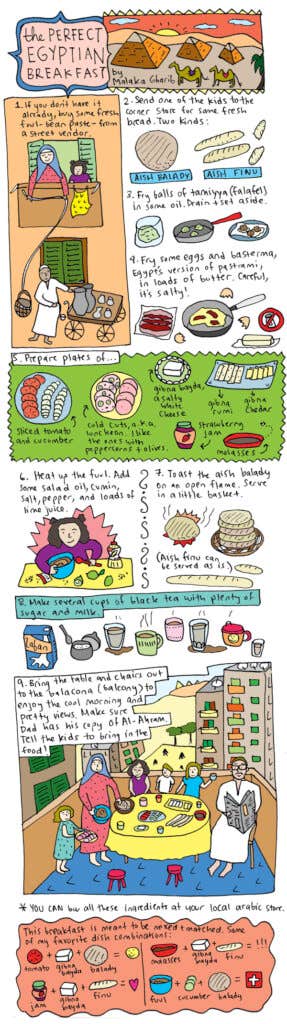 the PERFECT
EGYPTIAN
BREAKFAST
by
Malaka Gharib
1. If you don't have it
already, buy some fresh
foul-bean paste-from
a street vendor.
2. Send one of the kids to the
corner store for some fresh
bread. Two kinds:
AISH BALADY
AISH FINU
3. Fry balls of tamiyya (falafel)
in some oil. Drain + set aside.
4. Fry some eggs and basterma,
Egypt's version of pastrami,
in loads of butter. Careful,
it's salty!
5. Prepare plates of...
sliced tomato
and cucumber
cold cuts, a.k.a.
luncheon. I like
the ones with
peppercorns + olives.
gibna bayda,
a salty
white
cheese
gibna
rumi
gibna
chedar
strawberry
jam
molasses
6. Heat up the fuul. Add
some salad oil, cumin,
salt, pepper, and loads of
lime juice.
7. Toast the aish balady
on an open flame. Serve
in a little basket.
(Aish finu can
be served as is.)
8. Make several cups of black tea with plenty of
sugar and milk.
Laban
9. Bring the table and chairs out
to the balacona (balcony) to
enjoy the cool morning and
pretty views. Make sure
Dad has his copy of Al-Ahram.
Tell the kids to bring in the
food!
* YOU CAN buy all these ingredients at your local arabic store.
This breakfast is meant to be mixed + matched. Some
of my favorite dish combinations:
tomato + gibna bayda + balady =
molasses + gibna bayda + finu = !!!
jam + gibna bayda + finu =
fuul + cucumber + balady =